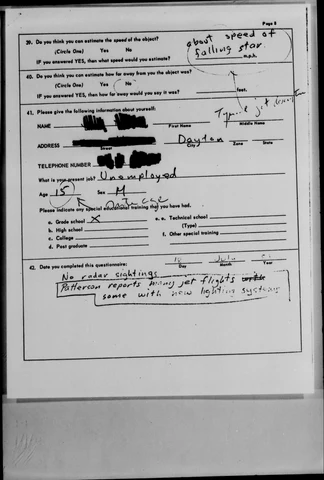 Page 8
39. Do you think you can estimate the speed of the object?
(Circle One) Yes No
IF you answered YES, then what speed would you estimate? m.p.h.
about speed of
falling star
40. Do you think you can estimate how far away from you the object was?
(Circle One) Yes No
IF you answered YES, then how far away would you say it was? feet.
Typical jet
41. Please give the following information about yourself:
NAME
First Name Middle Name
ADDRESS Dayton
Street City Zone State
TELEPHONE NUMBER
What is your present job? Unemployed
Age 15 Sex M
Note age
Please indicate any special educational training that you have had.
a. Grade school X e. Technical school
b. High school (Type)
c. College f. Other special training
d. Post graduate
42. Date you completed this questionnaire: July
Day Month Year
No radar sightings
Patterson reports many jet flights
some with new lighting systems